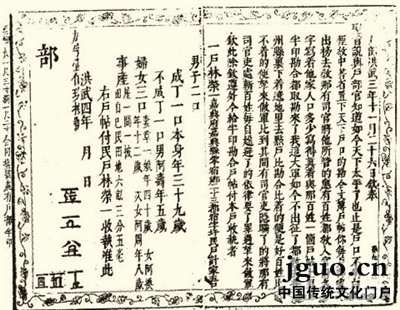 部洪武三年十一月二十六日欽奉
聖旨說與戶部官知道如今天下太平了也止是戶口不明白俚
教中書省置下天下戶口的勘合文簿戶帖你每戶部家
出榜去教那有司官將他所管的應有百姓都教入官附名
字寫着他家人口多少寫得真着與那百姓一個戶帖上用
半印勘合都取勘來了我這大軍如今不出征了都教去各
州縣裏下着遶地裏去點戶比勘合比着的便是好百姓比
不着的便拏來做軍比到其間有司官吏隱瞞了的將那有
司官吏處斬百姓每自躲避了的依律要了罪過拏來做軍
欽此除欽遵外今給半印勘合戶帖付本戶收執者
一戶林榮一嘉興府嘉興縣零宿鄉二十三都宿字圩民戶計家五口
男子二口
成丁一口本身年三十九歲
不成丁一口男阿壽年五歲
婦女三口 妻章一娘年四十歲 女阿換 次女阿周年八歲
事產 屋一間一披 田自己民田地六畝三分五毫
右戶帖付民戶林榮一收執准此
洪武四年 月 日
部
jguo.cn
中国传统文化门户